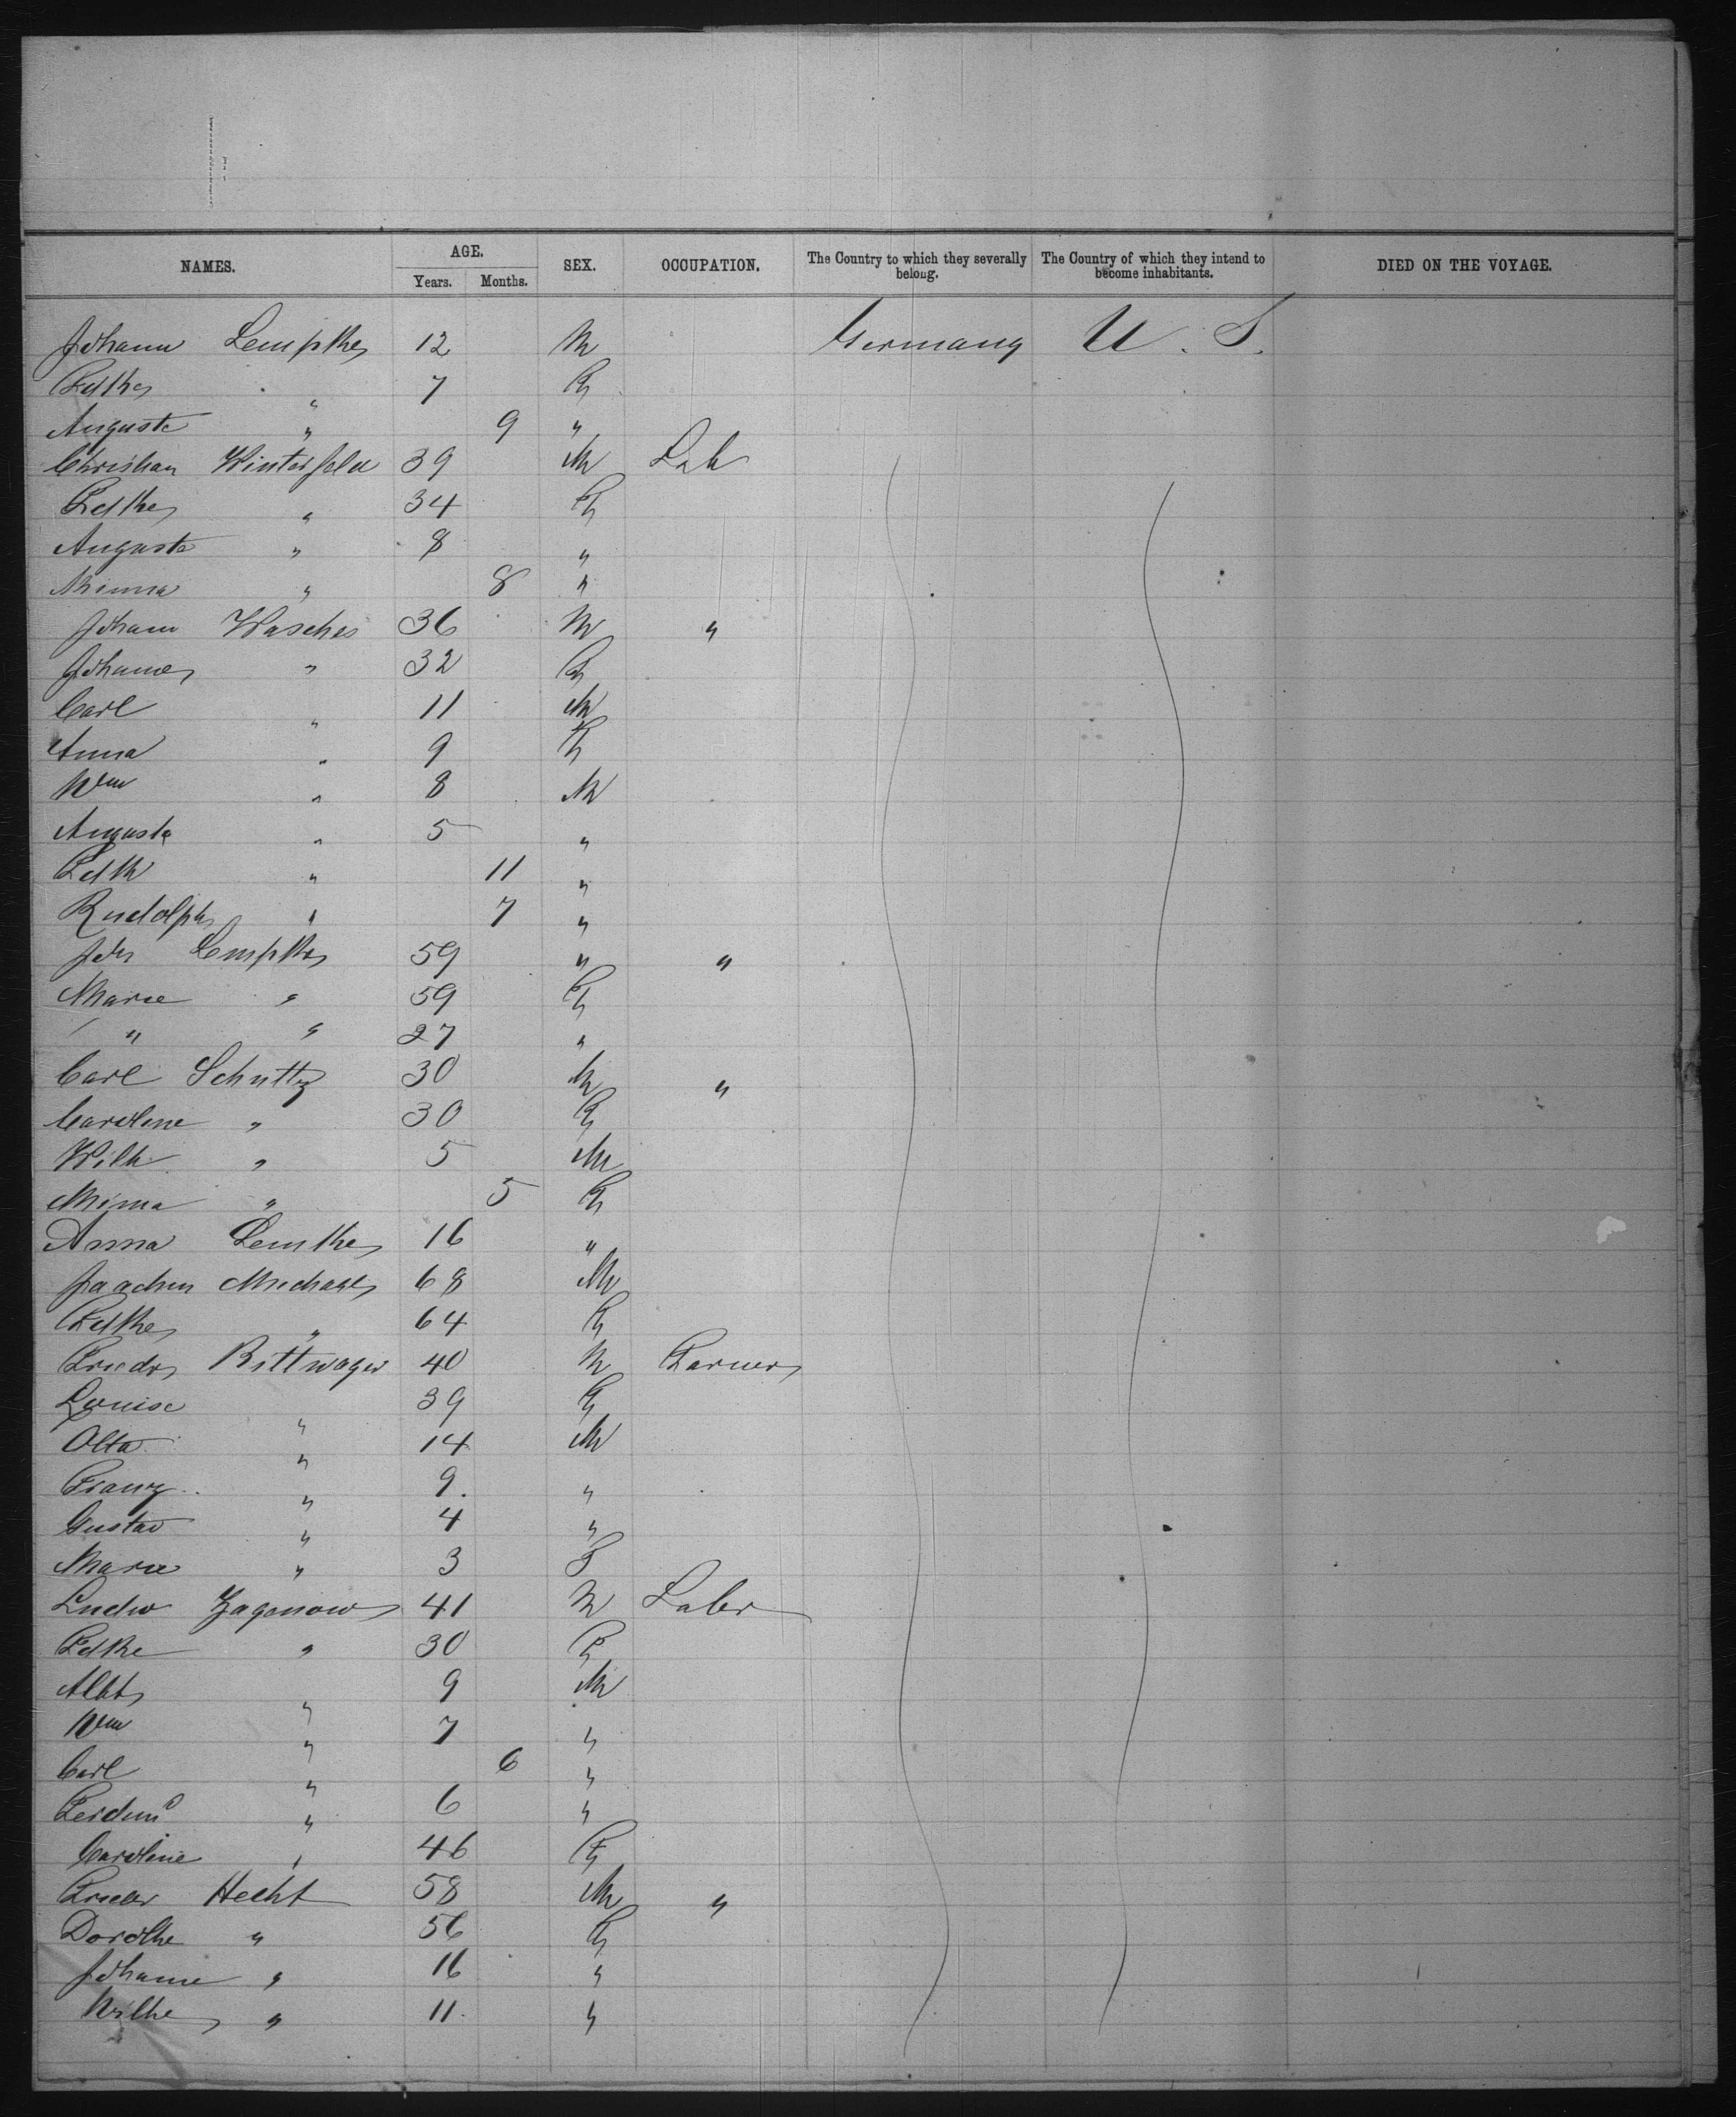 NAMES. AGE. SEX. OCCUPATION. The Country to which they severally belong. The Country of which they intend to become inhabitants. DIED ON THE VOYAGE.
Years. Months.
Johann Lempke 12 M Germany U. S.
7 F
Auguste " 9 "
Christian Winterfeld 39 M Lab
34 F
Auguste " 8 "
Minna " 8 "
Johann Wasches 36 M "
Johanne " 32 F
Carl " 11 M
Anna " 9 F
Wm " 8 M
Augusta " 5 "
" 11 "
Rudolph " 7 "
Joh Lempke 59 " "
Marie " 59 F
" " 27 "
Carl Schultz 30 M "
Caroline " 30 F
Wilh " 5 M
Minna " 5 F
Anna Lemke 16 "
Joachim Michael 68 M
" 64 F
Friedr Rittwager 40 M Farmer
Louise " 39 F
Otto " 14 M
Franz " 9 "
Gustav " 4 "
Marie " 3 F
Ludw Zagenow 41 M Labr
" 30 F
Albt " 9 M
Wm " 7 "
Carl " 6 "
Ferdind " 6 "
Caroline " 46 F
Friedr Hecht 58 M "
Dorothe " 56 F
Johanne " 16 "
Wilhe " 11 "